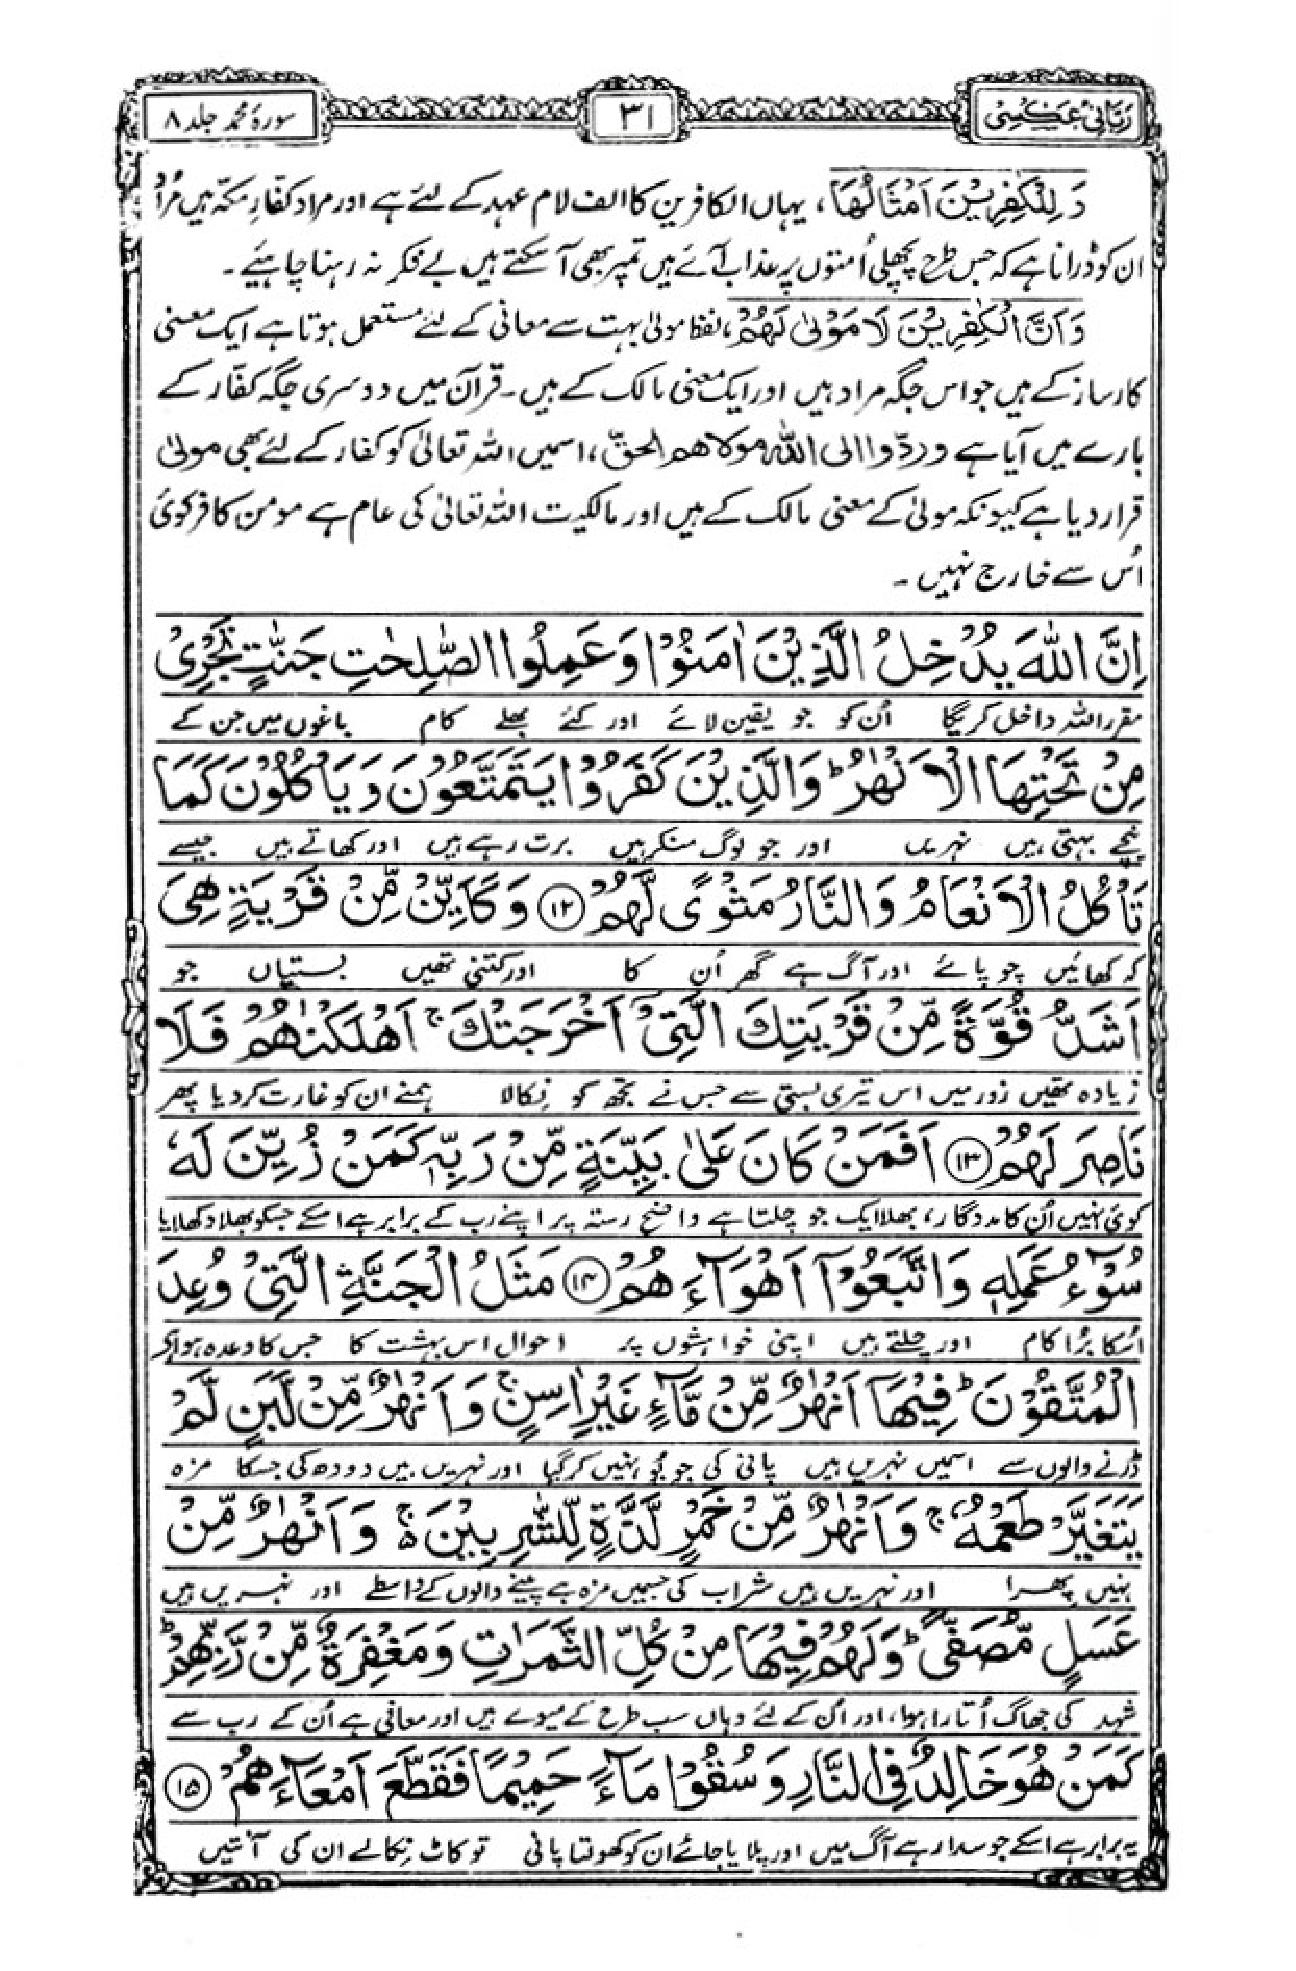 ربانی عکسی
۳۱
سورۂ محمد جلد ۸
وَلِلْكٰفِرِيْنَ اَمْثَالُهَا، یہاں الکافرین کا الف لام عہد کے لئے ہے اور مراد کفّارِ مکّہ ہیں مراد
ان کو ڈرانا ہے کہ جس طرح پچھلی اُمتوں پر عذاب آئے ہیں تمپر بھی آ سکتے ہیں بے فکر نہ رہنا چاہیئے۔
وَاَنَّ الْكٰفِرِيْنَ لَا مَوْلٰى لَهُمْ، لفظ مولیٰ بہت سے معانی کے لئے مستعمل ہوتا ہے ایک معنی
کارساز کے ہیں جو اس جگہ مراد ہیں اور ایک معنی مالک کے ہیں۔ قرآن میں دوسری جگہ کفّار کے
بارے میں آیا ہے وردّوا الی اللہ مولاھم الحقّ، اسمیں اللہ تعالیٰ کو کفار کے لئے بھی مولیٰ
قرار دیا ہے کیونکہ مولیٰ کے معنی مالک کے ہیں اور مالکیت اللہ تعالیٰ کی عام ہے مومن کافر کوئی
اُس سے خارج نہیں۔
اِنَّ اللّٰهَ يُدْخِلُ الَّذِيْنَ اٰمَنُوْا وَعَمِلُوا الصّٰلِحٰتِ جَنّٰتٍ تَجْرِيْ
مقرر اللہ داخل کریگا اُن کو جو یقین لائے اور کئے بھلے کام باغوں میں جن کے
مِنْ تَحْتِهَا الْاَنْهٰرُ ؕ وَالَّذِيْنَ كَفَرُوْا يَتَمَتَّعُوْنَ وَيَاْكُلُوْنَ كَمَا
نیچے بہتی ہیں نہریں اور جو لوگ منکر ہیں برت رہے ہیں اور کھاتے ہیں جیسے
تَاْكُلُ الْاَنْعَامُ وَالنَّارُ مَثْوًى لَّهُمْ ﴿۱۲﴾ وَكَاَيِّنْ مِّنْ قَرْيَةٍ هِيَ
کہ کھائیں چوپائے اور آگ ہے گھر اُن کا اور کتنی تھیں بستیاں جو
اَشَدُّ قُوَّةً مِّنْ قَرْيَتِكَ الَّتِيْٓ اَخْرَجَتْكَ ۚ اَهْلَكْنٰهُمْ فَلَا
زیادہ تھیں زور میں اس تیری بستی سے جس نے تجھ کو نکالا ہمنے ان کو غارت کر دیا پھر
نَاصِرَ لَهُمْ ﴿۱۳﴾ اَفَمَنْ كَانَ عَلٰى بَيِّنَةٍ مِّنْ رَبِّهٖ كَمَنْ زُيِّنَ لَهٗ
کوئی نہیں اُن کا مددگار، بھلا ایک جو چلتا ہے واضح رستہ پر اپنے رب کے برابر ہے اسکے جسکو بھلا دکھلایا
سُوْٓءُ عَمَلِهٖ وَاتَّبَعُوْٓا اَهْوَآءَهُمْ ﴿۱۴﴾ مَثَلُ الْجَنَّةِ الَّتِيْ وُعِدَ
اُسکا بُرا کام اور چلتے ہیں اپنی خواہشوں پر احوال اس بہشت کا جس کا وعدہ ہوا ہے
الْمُتَّقُوْنَ ؕ فِيْهَآ اَنْهٰرٌ مِّنْ مَّآءٍ غَيْرِ اٰسِنٍ ۚ وَاَنْهٰرٌ مِّنْ لَّبَنٍ لَّمْ
ڈرنے والوں سے اسمیں نہریں ہیں پانی کی جو بُو نہیں کر گیا اور نہریں ہیں دودھ کی جسکا مزہ
يَتَغَيَّرْ طَعْمُهٗ ۚ وَاَنْهٰرٌ مِّنْ خَمْرٍ لَّذَّةٍ لِّلشّٰرِبِيْنَ ۚ وَاَنْهٰرٌ مِّنْ
نہیں پھرا اور نہریں ہیں شراب کی جسمیں مزہ ہے پینے والوں کے واسطے اور نہریں ہیں
عَسَلٍ مُّصَفًّى ؕ وَلَهُمْ فِيْهَا مِنْ كُلِّ الثَّمَرٰتِ وَمَغْفِرَةٌ مِّنْ رَّبِّهِمْ ؕ
شہد کی جھاگ اُتارا ہوا، اور اُن کے لئے وہاں سب طرح کے میوے ہیں اور معافی ہے اُن کے رب سے
كَمَنْ هُوَ خَالِدٌ فِي النَّارِ وَسُقُوْا مَآءً حَمِيْمًا فَقَطَّعَ اَمْعَآءَهُمْ ﴿۱۵﴾
یہ برابر ہے اسکے جو سدا رہے آگ میں اور پلایا جائے ان کو کھولتا پانی تو کاٹ نکالے ان کی آنتیں